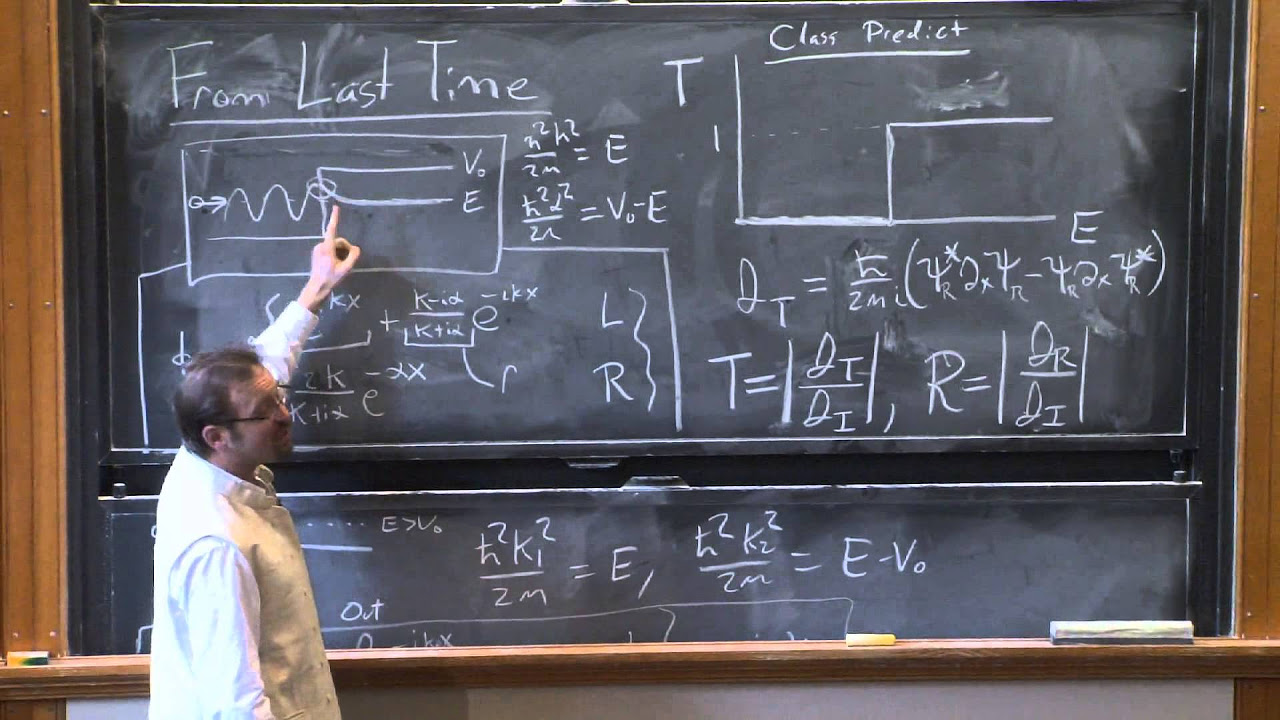 From Last Time
V₀
E
ħ²k²/2m = E
ħ²α²/2m = V₀-E
kx + (k-iα)/(k+iα) e^-ikx L
ϕ 2k/(k+iα) e^-αx r R
Class Predict
T
1
E
𝒥_T = ħ/2mi (ψ_R^* ∂ₓψ_R - ψ_R ∂ₓψ_R^*)
T = |𝒥_T/𝒥_I|, R = |𝒥_R/𝒥_I|
E>V₀
ħ²k₁²/2m = E, ħ²k₂²/2m = E-V₀
Out
-ikx